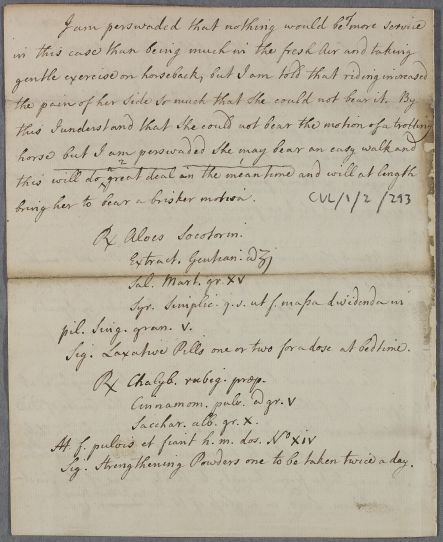 I am perswaded that nothing would be of more service
in this case than being much in the fresh Air and taking
gentle exercise on horseback, but I am told that riding increased
the pain of her Side so much that She could not bear it. By
this I understand that She could not bear the motion of a trotting
horse but I am perswaded She may bear an easy walk and
this will do a great deal in the mean time and will at length
bring her to bear a brisker motion.
CVL/1/2/293
℞ Aloes Socotorin.
Extract. Gentian. a ʒj
Sal. Mart. gr. XV
Syr. Simplic. q.s. ut f. massa dividenda in
pil. sing. gran. v.
Sig. Laxative Pills one or two for a dose at bedtime.
℞ Chalyb. rubig. præp.
Cinnamom. pulv. a gr. V
Sacchar. alb. gr. X.
M f. pulvis et fiant h. m. dos. No XIV
Sig. Strengthening Powders one to be taken twice a day.